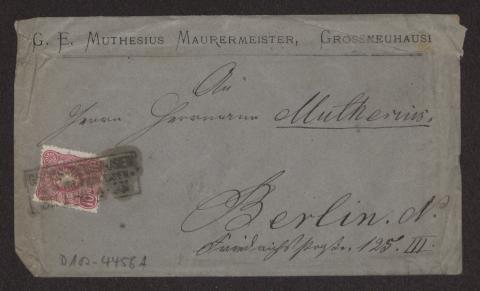 G. E. MUTHESIUS MAURERMEISTER, GROSSNEUHAUSE
An
Herrn Hermann Muthesius.
Berlin. N.
Friedrichstrasse. 125. III.
10
D102-4456A